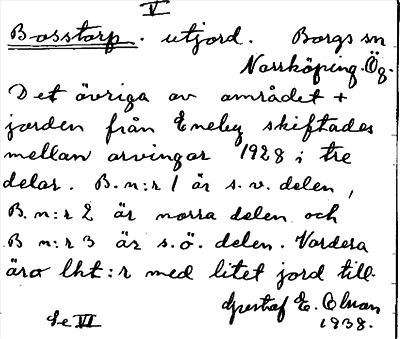 V
Bosstorp. utjord. Borgs sn
Norrköping. Ög.
Det övriga av området +
jorden från Eneby skiftades
mellan arvingar 1928 i tre
delar. B.n:r 1 är s.v. delen,
B.n:r 2 är norra delen och
B n:r 3 är s.ö. delen. Vardera
äro lht:r med litet jord till.
Gustaf E.
Se VI 1938.